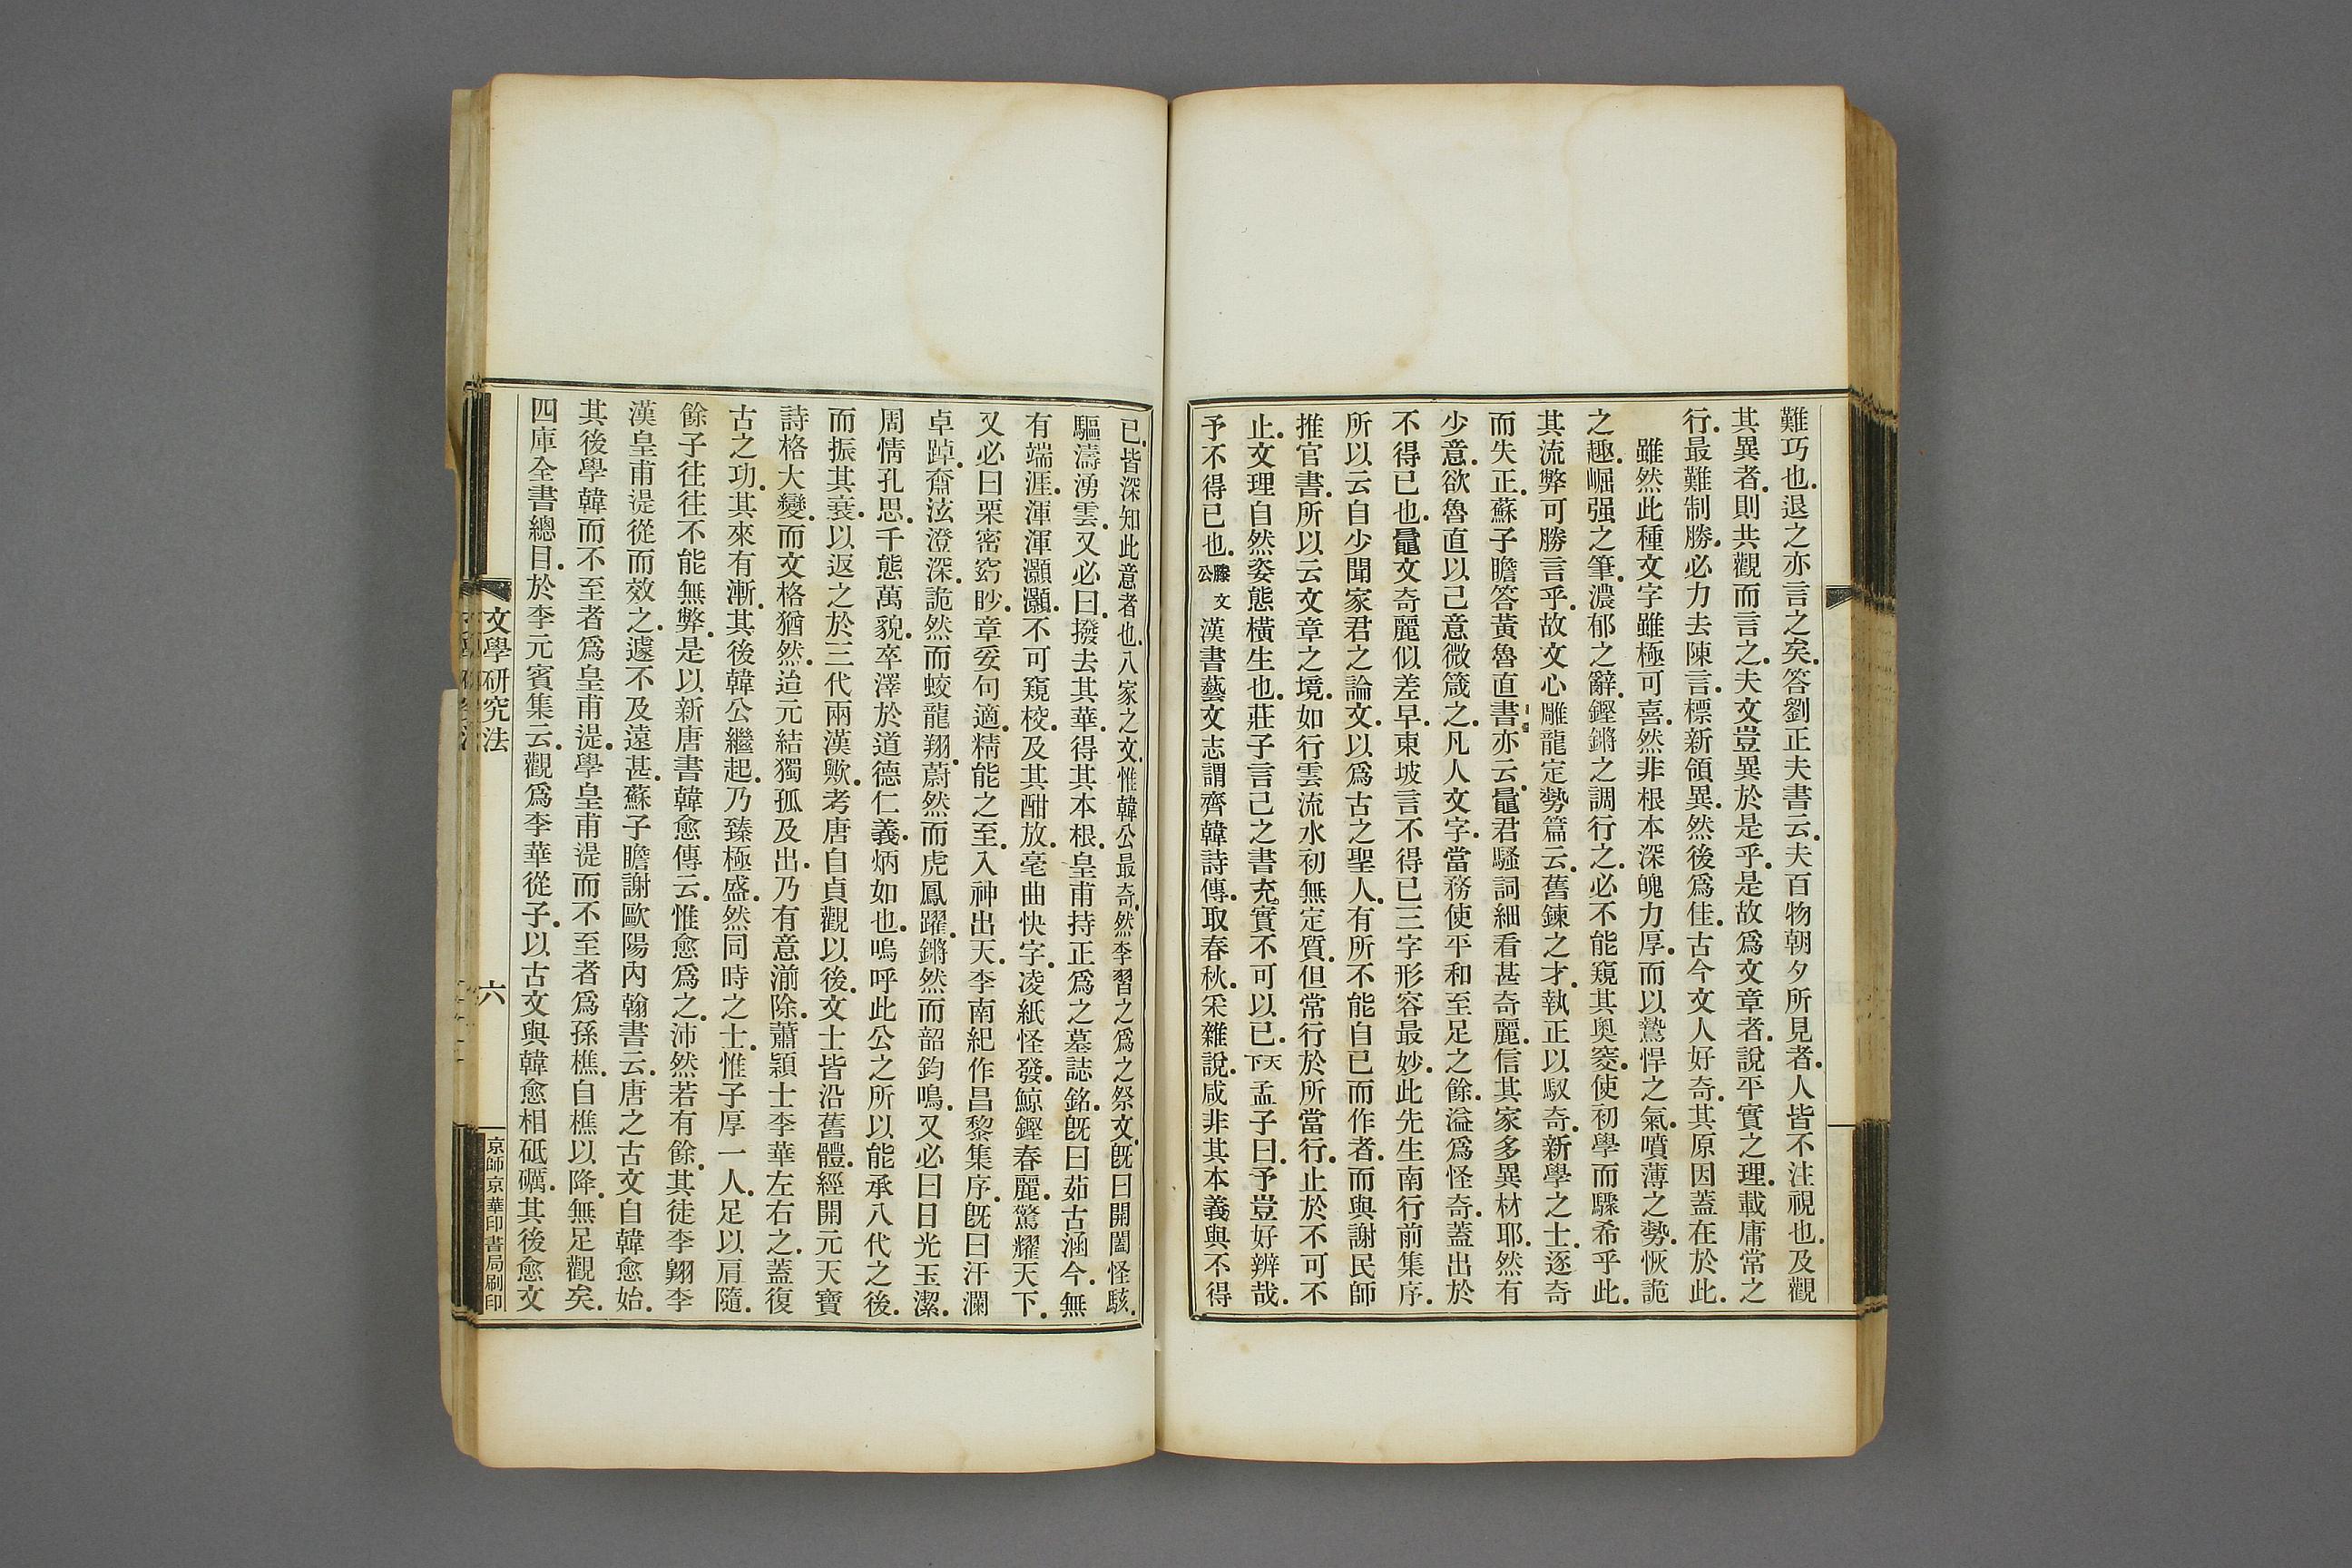 難巧也退之亦言之矣答劉正夫書云夫百物朝夕所見者人皆不注視也及觀
其異者則共觀而言之夫文豈異於是乎是故爲文章者說平實之理載庸常之
行最難制勝必力去陳言標新領異然後爲佳古今文人好奇其原因蓋在於此
雖然此種文字雖極可喜然非根本深魄力厚而以鷙悍之氣噴薄之勢恢詭
之趣崛强之筆濃郁之辭鏗鏘之調行之必不能窺其奧窔使初學而驟希乎此
其流弊可勝言乎故文心雕龍定勢篇云舊鍊之才執正以馭奇新學之士逐奇
而失正蘇子瞻答黃魯直書亦云鼂君騷詞細看甚奇麗信其家多異材耶然有
少意欲魯直以己意微箴之凡人文字當務使平和至足之餘溢爲怪奇蓋出於
不得已也鼂文奇麗似差早東坡言不得已三字形容最妙此先生南行前集序
所以云自少聞家君之論文以爲古之聖人有所不能自已而作者而與謝民師
推官書所以云文章之境如行雲流水初無定質但常行於所當行止於不可不
止文理自然姿態橫生也莊子言己之書充實不可以已天下孟子曰予豈好辨哉
予不得已也滕文公漢書藝文志謂齊韓詩傳取春秋采雜說咸非其本義與不得
已皆深知此意者也八家之文惟韓公最奇然李習之爲之祭文旣曰開闔怪駭
驅濤湧雲又必曰撥去其華得其本根皇甫持正爲之墓誌銘旣曰茹古涵今無
有端涯渾渾灝灝不可窺校及其酣放毫曲快字凌紙怪發鯨鏗春麗驚耀天下
又必曰栗密窈眇章妥句適精能之至入神出天李南紀作昌黎集序旣曰汗瀾
卓踔奫泫澄深詭然而蛟龍翔蔚然而虎鳳躍鏘然而韶鈞鳴又必曰日光玉潔
周情孔思千態萬貌卒澤於道德仁義炳如也嗚呼此公之所以能承八代之後
而振其衰以返之於三代兩漢歟考唐自貞觀以後文士皆沿舊體經開元天寶
詩格大變而文格猶然迨元結獨孤及出乃有意湔除蕭穎士李華左右之蓋復
古之功其來有漸其後韓公繼起乃臻極盛然同時之士惟子厚一人足以肩隨
餘子往往不能無弊是以新唐書韓愈傳云惟愈爲之沛然若有餘其徒李翺李
漢皇甫湜從而效之遽不及遠甚蘇子瞻謝歐陽內翰書云唐之古文自韓愈始
其後學韓而不至者爲皇甫湜學皇甫湜而不至者爲孫樵自樵以降無足觀矣
四庫全書總目於李元賓集云觀爲李華從子以古文與韓愈相砥礪其後愈文
文學研究法
六
京師京華印書局刷印